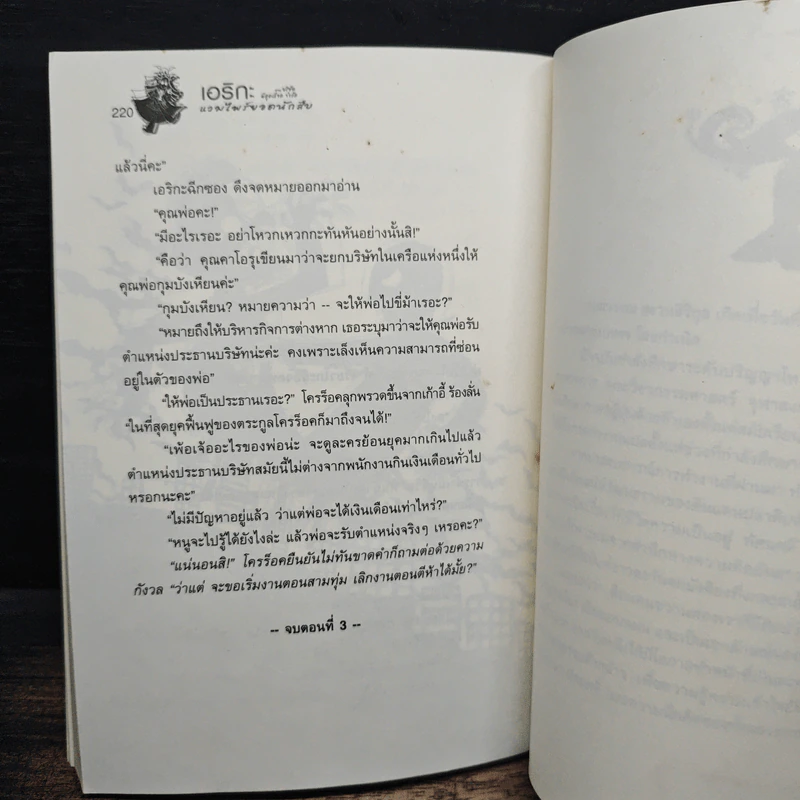 220
เอริกะ
แวมไพร์ยอดนักสืบ
แล้วนี่คะ"
เอริกะฉีกซอง ดึงจดหมายออกมาอ่าน
"คุณพ่อคะ!"
"มีอะไรเรอะ อย่าโหวกเหวกกะทันหันอย่างนั้นสิ!"
"คือว่า คุณคาโอรุเขียนมาว่าจะยกบริษัทในเครือแห่งหนึ่งให้
คุณพ่อกุมบังเหียนค่ะ"
"กุมบังเหียน? หมายความว่า -- จะให้พ่อไปขี่ม้าเรอะ?"
"หมายถึงให้บริหารกิจการต่างหาก เธอระบุมาว่าจะให้คุณพ่อรับ
ตำแหน่งประธานบริษัทน่ะค่ะ คงเพราะเล็งเห็นความสามารถที่ซ่อน
อยู่ในตัวของพ่อ"
"ให้พ่อเป็นประธานเรอะ?" โครร็อคลุกพรวดขึ้นจากเก้าอี้ ร้องลั่น
"ในที่สุดยุคฟื้นฟูของตระกูลโครร็อคก็มาถึงจนได้!"
"เพ้อเจ้ออะไรของพ่อน่ะ จะดูละครย้อนยุคมากเกินไปแล้ว
ตำแหน่งประธานบริษัทสมัยนี้ไม่ต่างจากพนักงานกินเงินเดือนทั่วไป
หรอกนะคะ"
"ไม่มีปัญหาอยู่แล้ว ว่าแต่พ่อจะได้เงินเดือนเท่าไหร่?"
"หนูจะไปรู้ได้ยังไงล่ะ แล้วพ่อจะรับตำแหน่งจริงๆ เหรอคะ?"
"แน่นอนสิ!" โครร็อคยืนยันไม่ทันขาดคำก็ถามต่อด้วยความ
กังวล "ว่าแต่ จะขอเริ่มงานตอนสามทุ่ม เลิกงานตอนตีห้าได้มั้ย?"
-- จบตอนที่ 3 --